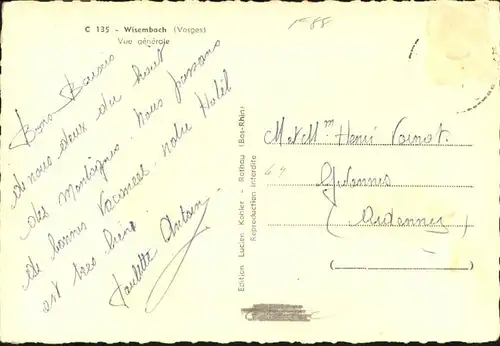 C 135 - Wisembach (Vosges)
Vue générale
Bons Baisers
de nous deux du haut
des Montagnes. Nous passons
de bonnes Vacances. notre Hôtel
est très bien.
Paulette Antoin
Edition Lucien Kohler - Rothau (Bas-Rhin)
Reproduction interdite
1588
M et Mme Henri
Givonnes
(Ardennes)